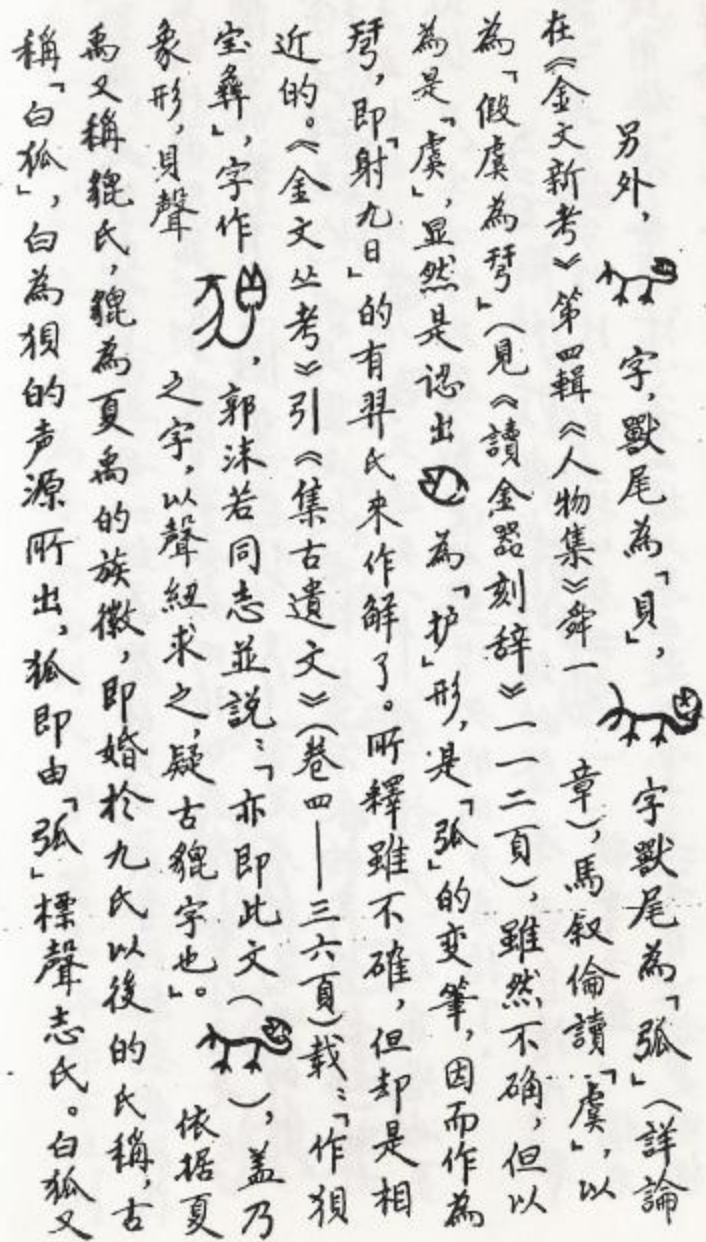 另外，字，獸尾為「貝」，字獸尾為「弧」（詳論
在《金文新考》第四輯《人物集》舜一章），馬叙倫讀「虞」，以
為「假虞為」（見《讀金器刻辞》一一二頁），雖然不确，但以
為是「虞」，显然是認出為「护」形，是「弧」的变筆，因而作為
，即「射九日」的有羿氏来作解了。所釋雖不確，但却是相
近的。《金文丛考》引《集古遺文》（巻四——三六頁）載：「作狽
宝彝」，字作，郭沫若同志並説：「亦即此文（），盖乃
象形，貝聲之字，以聲紐求之，疑古貔字也」。依据夏
禹又稱貔氏，貔為夏禹的族徽，即婚於九氏以後的氏稱，古
稱「白狐」，白為狽的声源所出，狐即由「弧」標聲志氏。白狐又